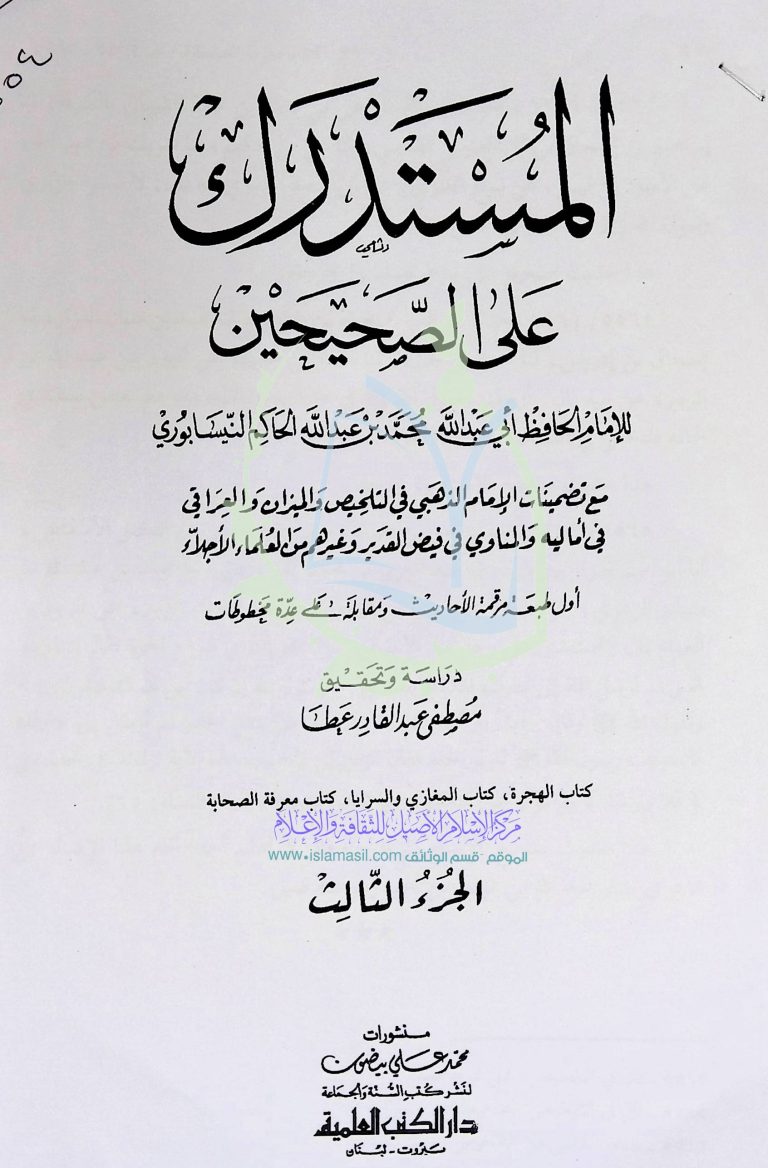 المُسْتَدْرَك
عَلَى الصَّحِيحَيْن
للإمَامِ الحَافِظ أبي عَبْدِ اللّه مُحَمَّد بْن عَبْدِ اللّه الحَاكِم النَّيسَابُوري
مَع تضمينَات الإمَام الذهَبي في التلخيص وَالميزان وَالعِراقي
في أماليه وَالمناوي في فيض القدير وَغيرهم مِن العُلمَاء الأجِلّاء
أول طبعَة مرقمة الأحَاديث وَمقابلة عَلى عِدّة مخطوطات
دِرَاسَة وَتحقِيق
مُصطفى عَبد القادِر عَطا
كتاب الهجرة، كتاب المغازي والسرايا، كتاب معرفة الصحابة
مركز الإسلام الأصيل للثقافة والإعلام
الموقع - قسم الوثائق www.islamasil.com
الجُزءُ الثَّالِثْ
منشورات
محمد علي بيضون
لنَشر كُتبِ السُّنّة وَالجمَاعَة
دار الكتب العلمية
بَيروت - لبنان